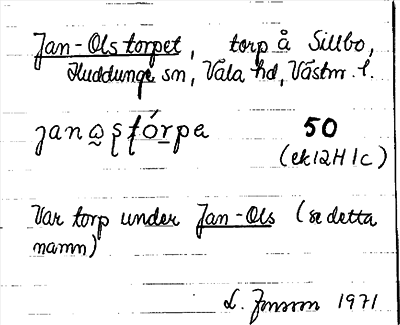 Jan-Ols torpet, torp å Sillbo,
Huddunge sn, Våla hd, Västm. l.
janω̰ʂʈórpa 50
(ek 12H 1c)
Var torp under Jan-Ols (se detta
namn)
L. Jonsson 1971